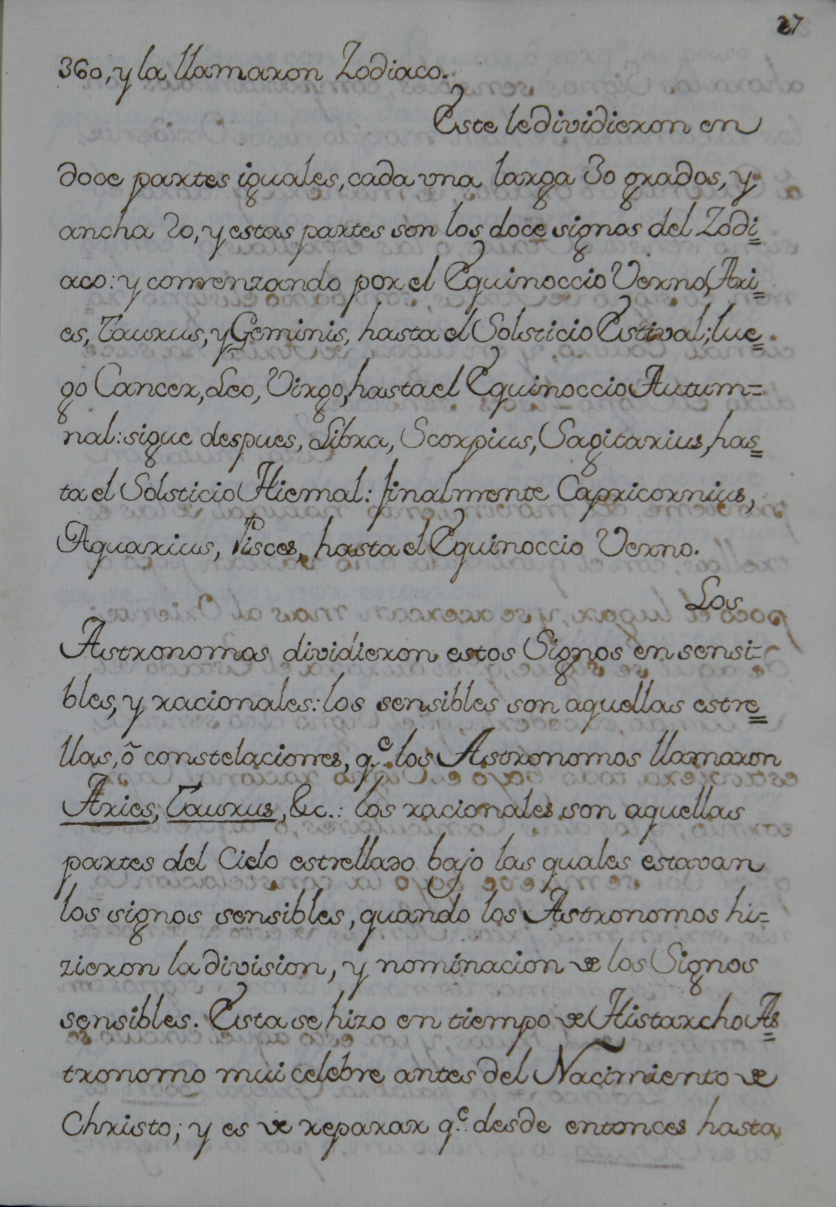 27
360, y la llamaron Zodiaco.
Este le dividieron en
doce partes iguales, cada vna larga 30 grados, y
ancha 20, y estas partes son los doce signos del Zodi=
aco: y comenzando por el Equinoccio Verno, Ari=
es, Taurus, y Geminis, hasta el Solsticio Estival; lue=
go Cancer, Leo, Virgo, hasta el Equinoccio Autum=
nal: sigue despues, Libra, Scorpius, Sagitarius, has=
ta el Solsticio Hiemal: finalmente Capricornius,
Aquarius, Pisces, hasta el Equinoccio Verno.
Los
Astronomos dividieron estos Signos en sensi=
bles, y racionales: los sensibles son aquellas estre=
llas, ô constelaciones, q.e los Astronomos llamaron
Aries, Taurus, &c.: los racionales son aquellas
partes del Cielo estrellado bajo las quales estavan
los signos sensibles, quando los Astronomos hi=
zieron la division, y nominacion de los Signos
sensibles. Esta se hizo en tiempo de Histarcho As=
tronomo mui celebre antes del Nacimiento de
Christo; y es de reparar q.e desde entonces hasta